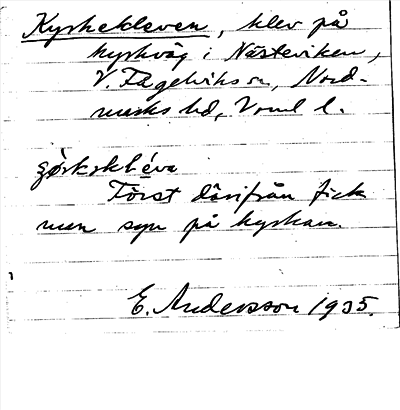 Kyrkekleven, klev på
kyrkväg i Nästeviken,
V. Fågelviks sn, Nord-
marks hd, Vrml l.
Först därifrån fick
man syn på kyrkan.
E. Andersson 1935.